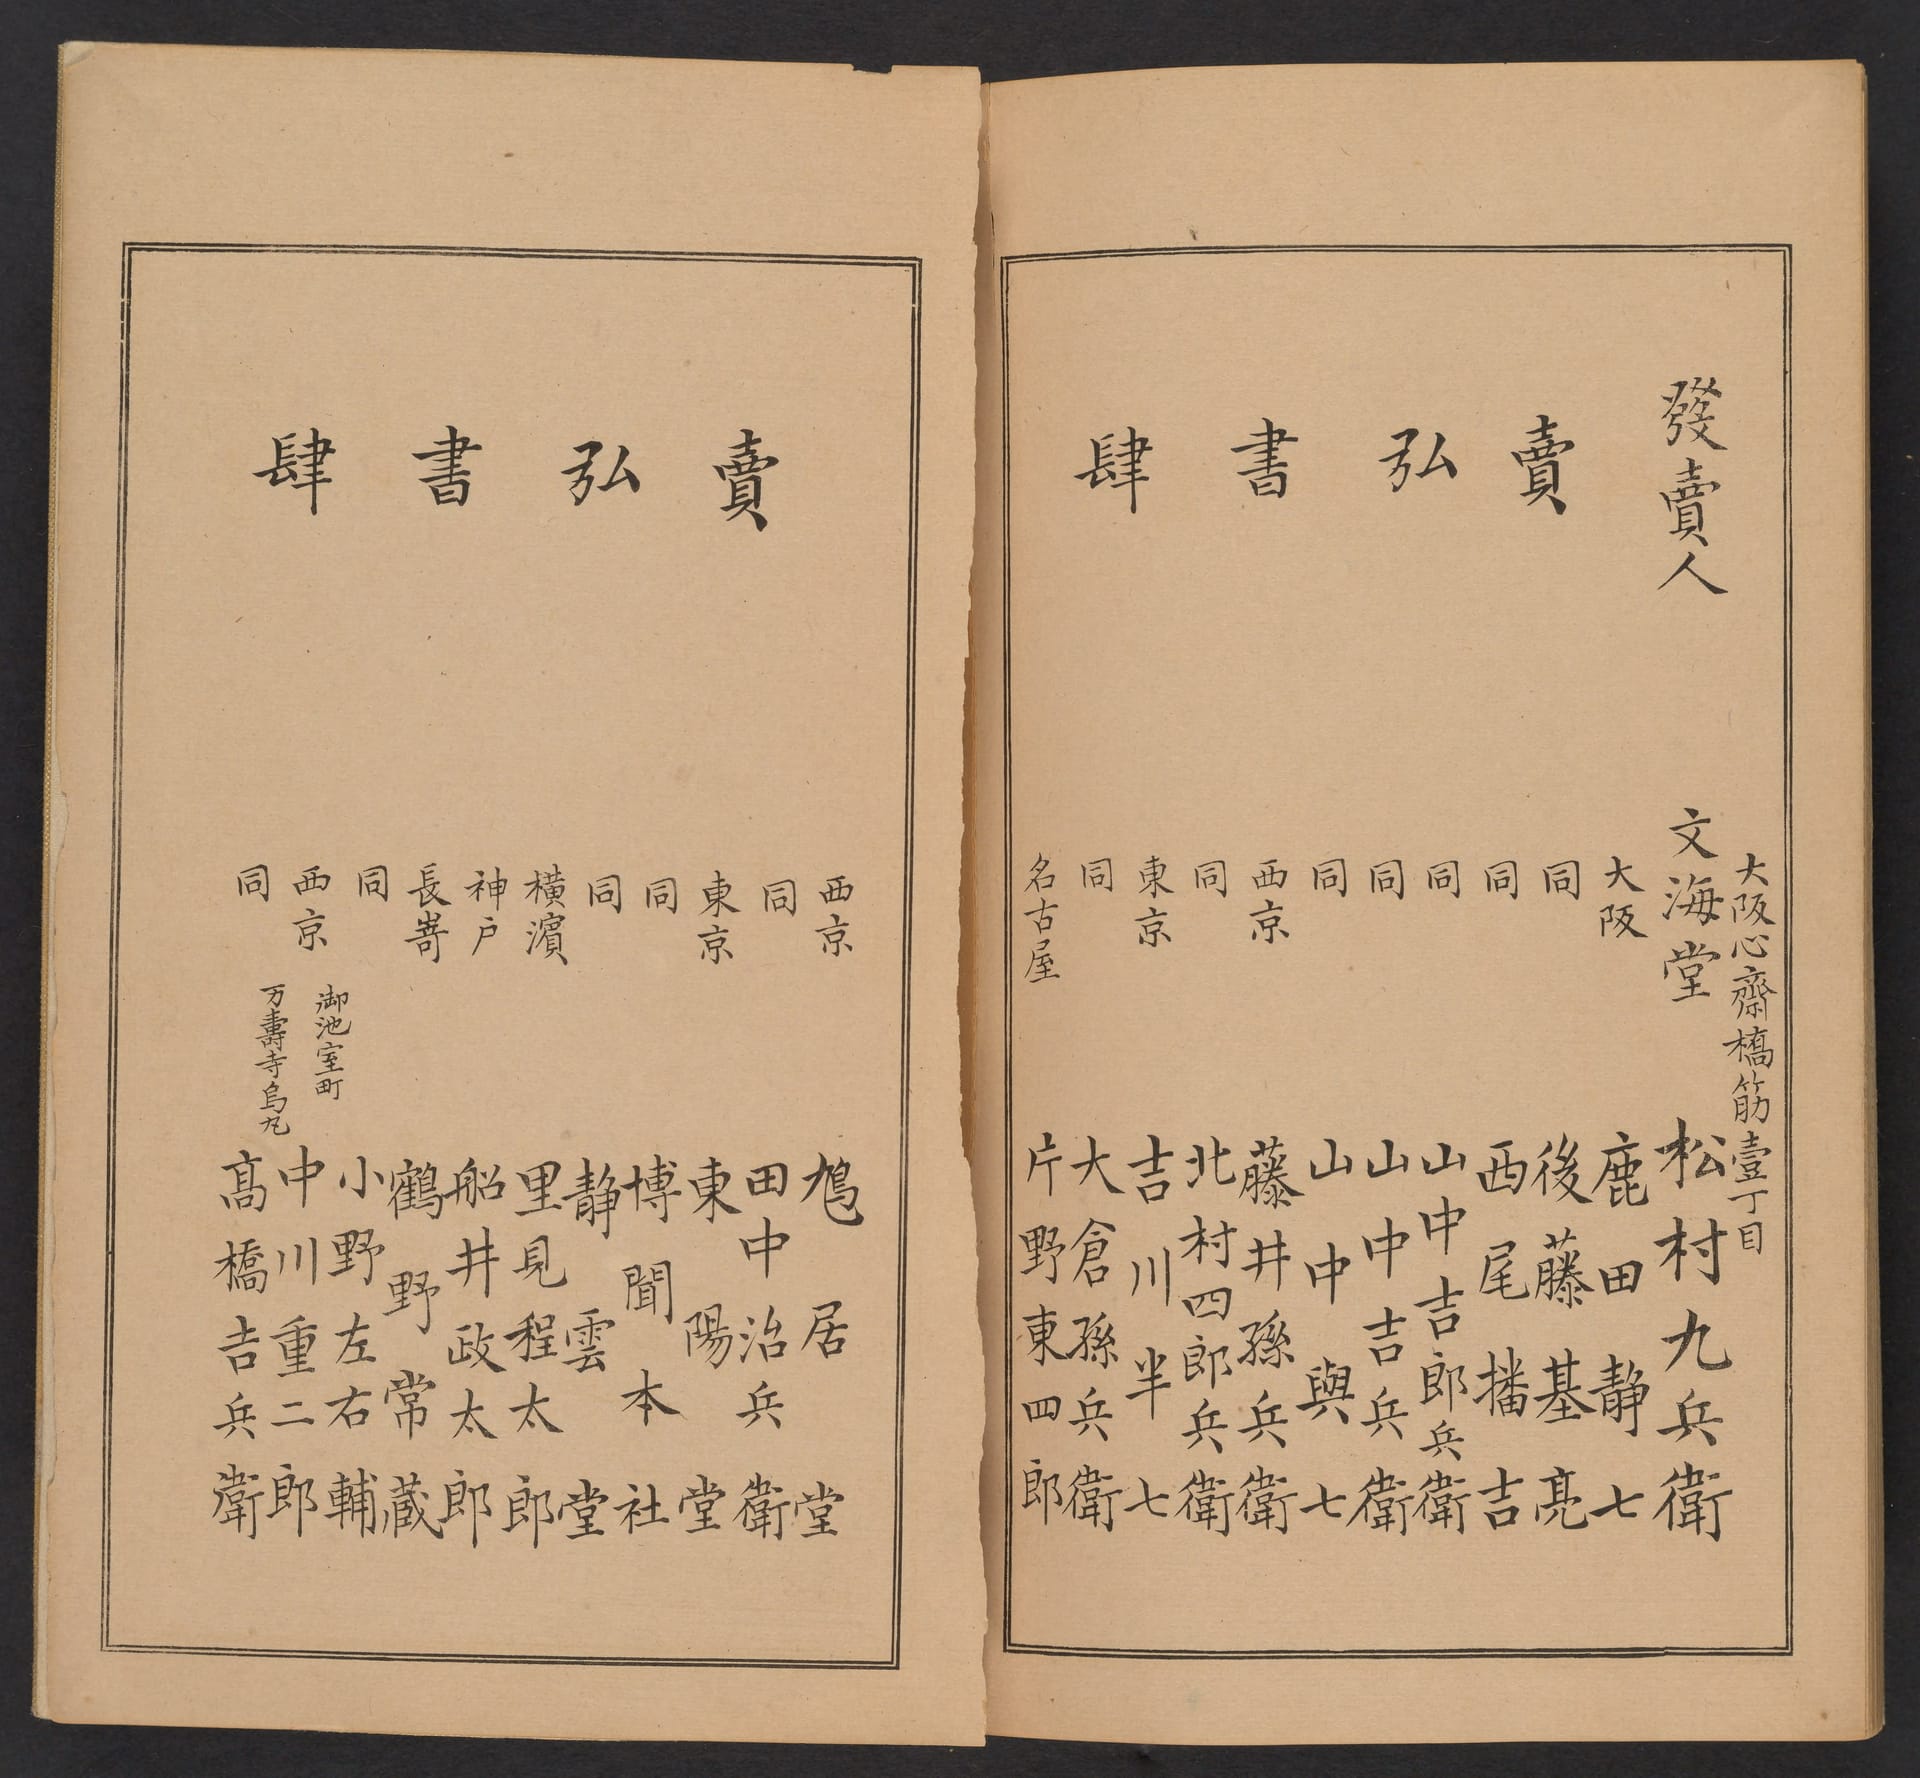 發賣人
大阪心齋橋筋壹丁目
文海堂 松村九兵衛
賣弘書肆
大阪 鹿田静七
同 後藤基亮
同 西尾播吉
同 山中吉郎兵衛
同 山中吉兵衛
同 山中與七
西京 藤井孫兵衛
同 北村四郎兵衛
東京 吉川半七
同 大倉孫兵衛
名古屋 片野東四郎
賣弘書肆
西京 鳩居堂
同 田中治兵衛
東京 東陽堂
同 博聞本社
同 静雲堂
橫濱 里見程太郎
神戸 船井政太郎
長嵜 鶴野常藏
同 小野左右輔
西京 御池室町 中川重二郎
同 万壽寺烏丸 髙橋吉兵衛